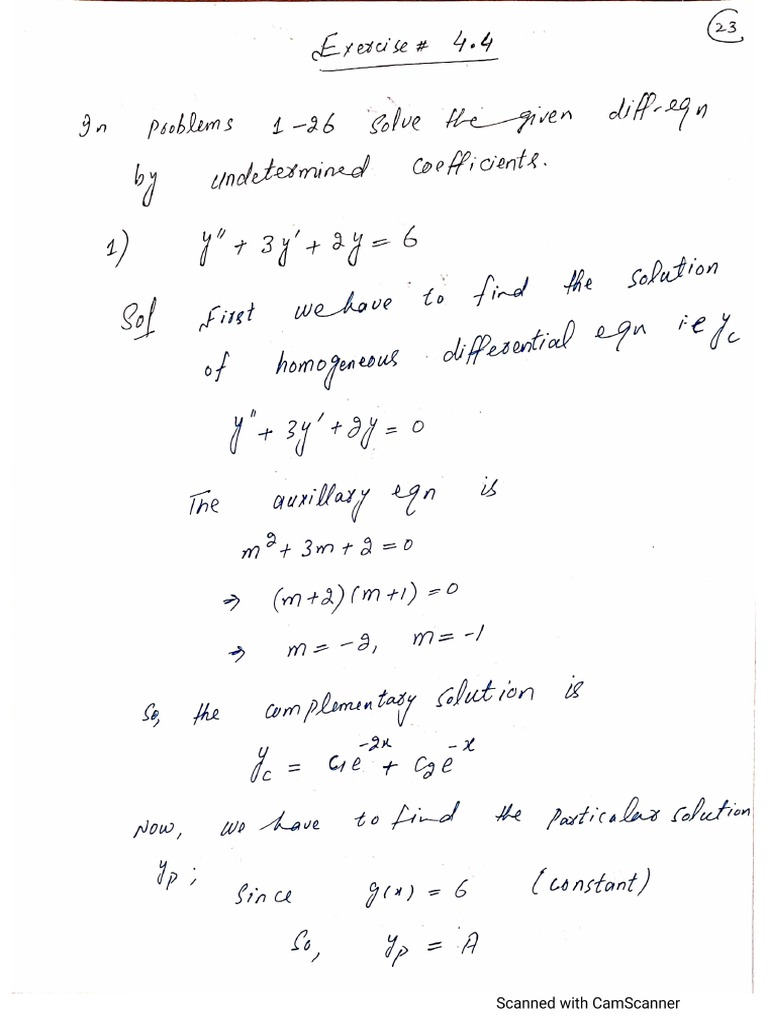 23
Exercise # 4.4
In problems 1-26 solve the given diff-eqn
by undetermined coefficients.
1) y'' + 3y' + 2y = 6
Sol First we have to find the solution
of homogeneous differential eqn i.e y_c
y'' + 3y' + 2y = 0
The auxillary eqn is
m² + 3m + 2 = 0
⇒ (m+2)(m+1) = 0
⇒ m = -2, m = -1
So, the complementary solution is
y_c = c₁e^{-2x} + c₂e^{-x}
Now, we have to find the particular solution
y_p ;
Since g(x) = 6 (constant)
So, y_p = A
Scanned with CamScanner